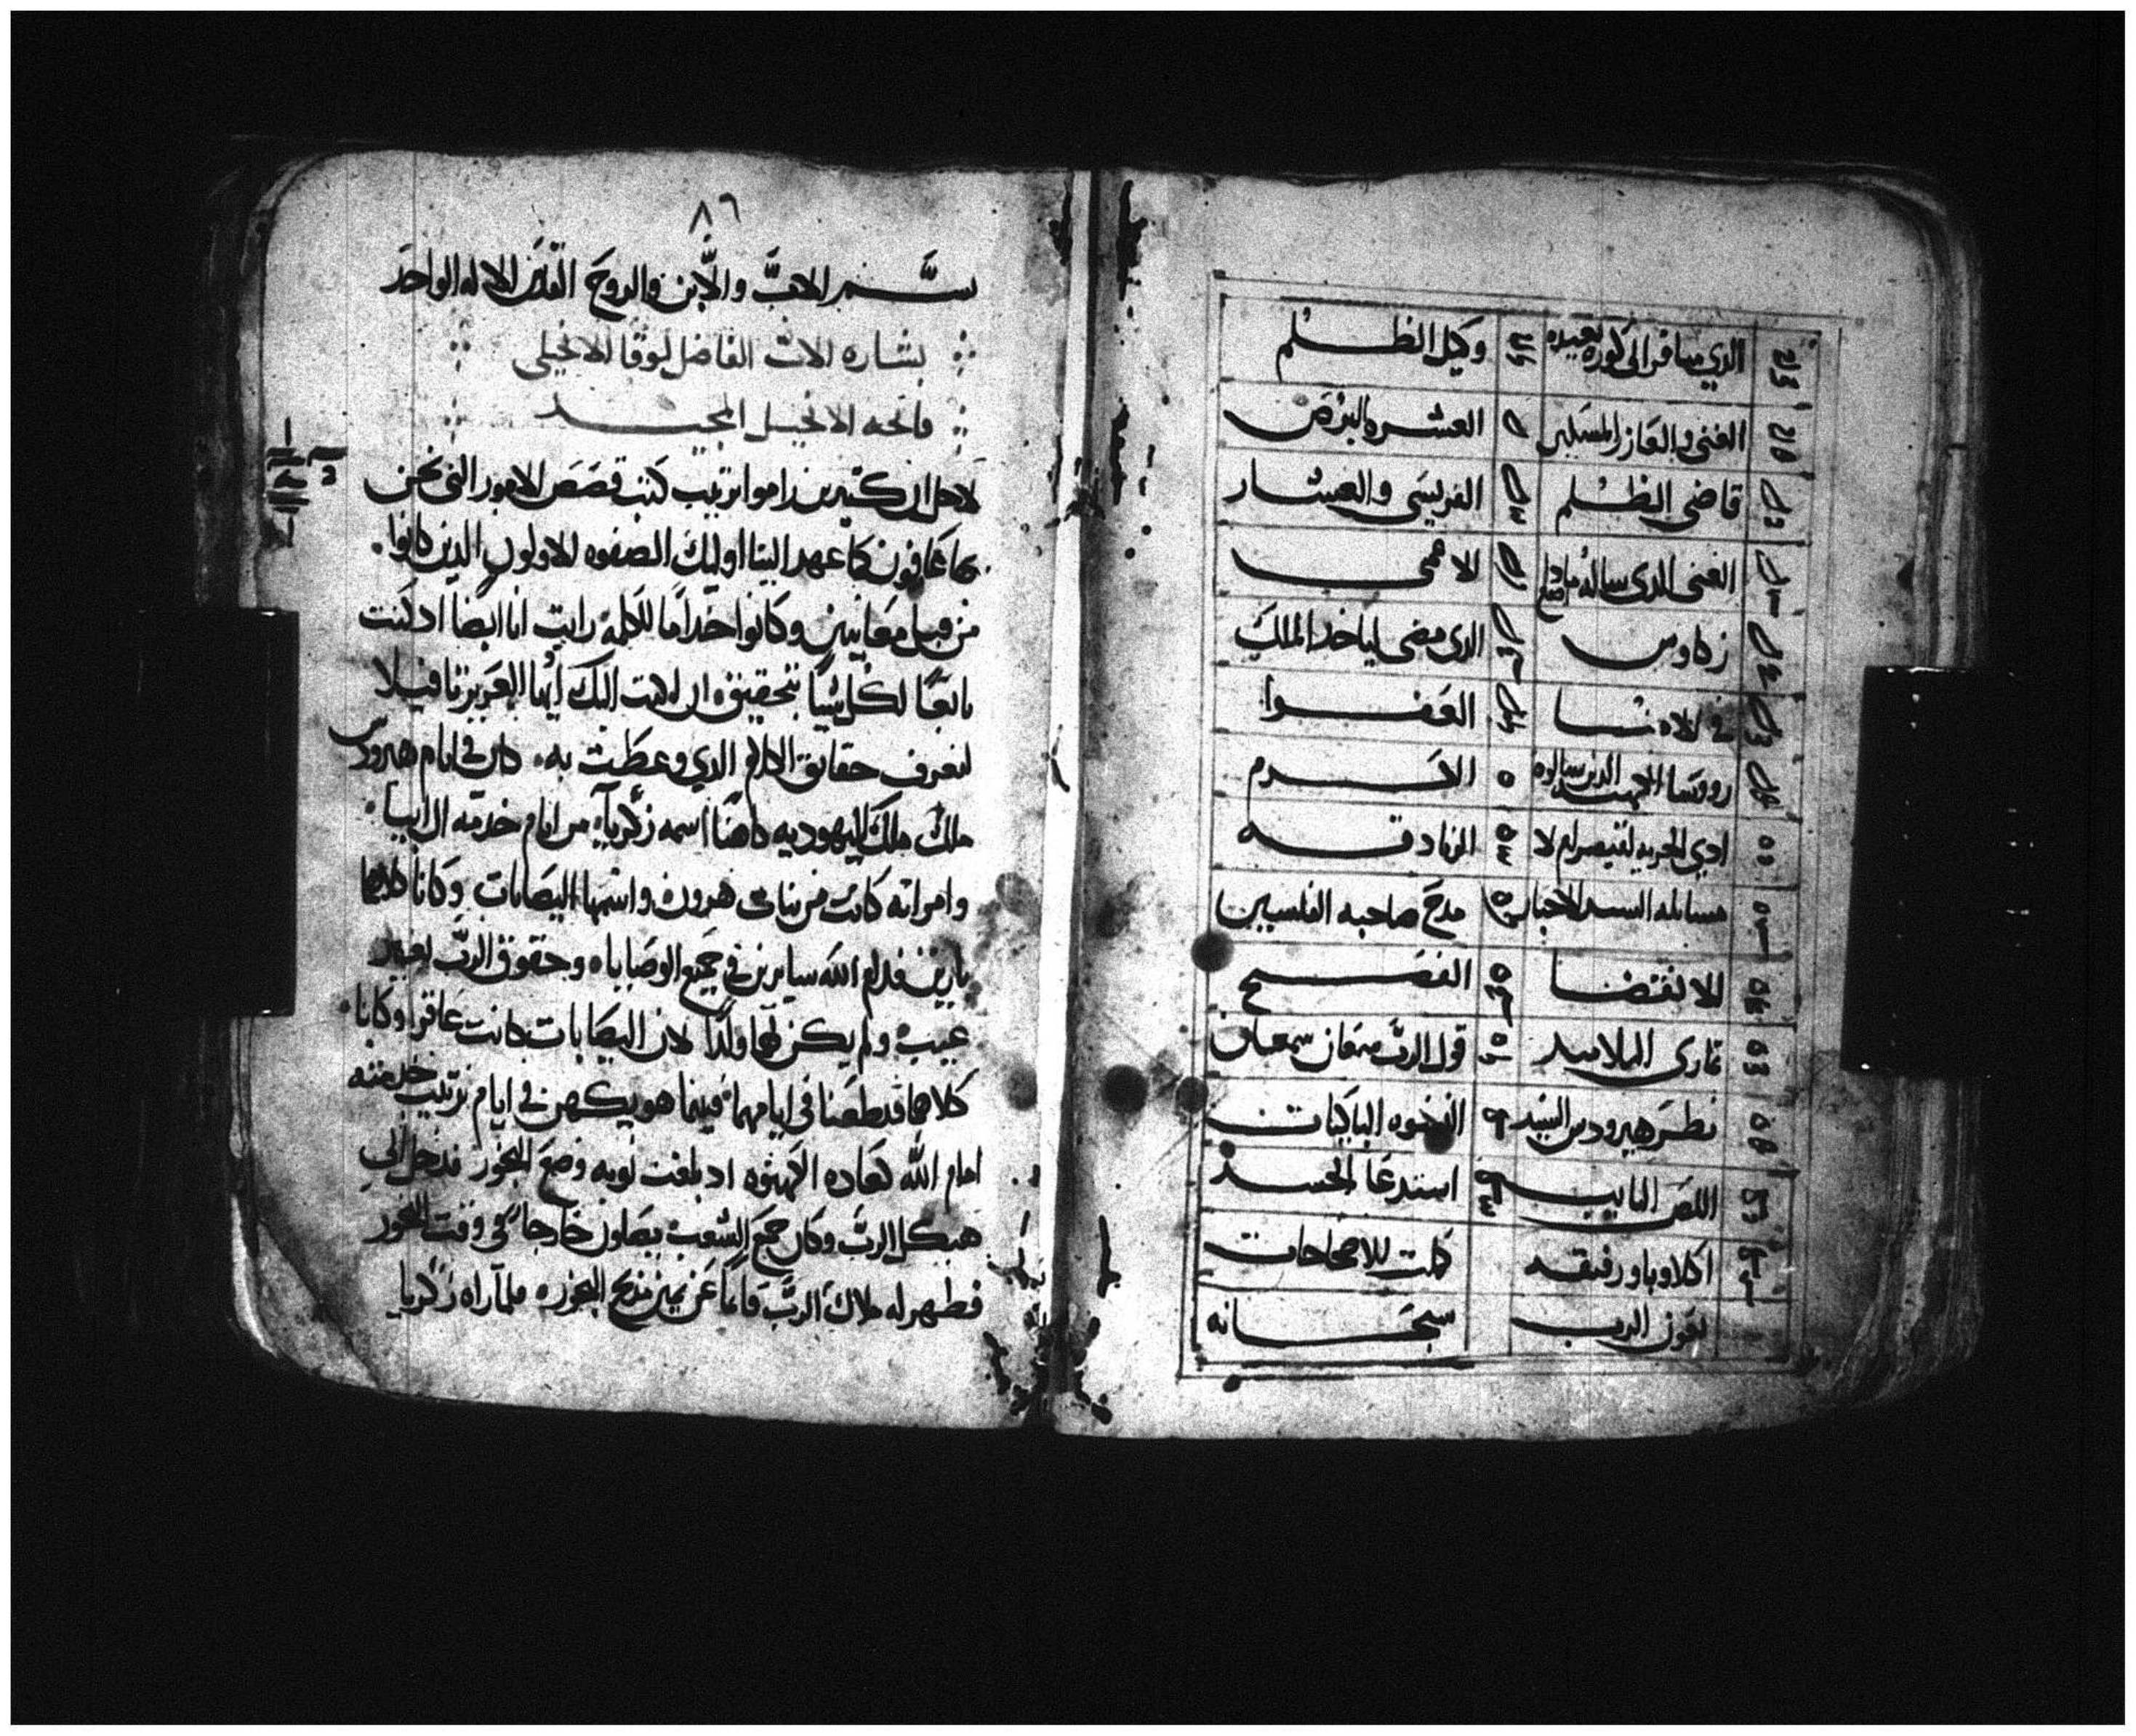 الذي سافر الى كوره بعيده وكيل الظلم
الغنى والعازر المسكين العشره البرص
قاضي الظلم الفريسي والعشار
الغنى الذي ساله الاعمى
زكاوس الذي مضى لياخد الملك
العفوا
رووسا الذين سالوه الكرم
الجزيه لقيصر ام لا الزنادقه
مسايله السيد للاحبار مدح صاحبه الفلسين
الانقضا الفصح
قول الرب سمعان
نظر هيرودس السيد النسوه الباكيات
اللص التايب استدعا الجسد
اكلاوبا ورفيقه كملت الاصحاحات
بعون الرب سبحانه
٨٦
بسم الاب والابن والروح القدس الاله الواحد
بشاره الاب الفاضل لوقا الانجيلي
فاتحه الانجيل المجيد
لاجل ان كثيرين راموا ترتيب كتب قصص الامور التي نحن
بها عارفون كما عهد الينا اوليك الصفوه الاولون الذين كانوا
من قبل معاينين وكانوا خداما للكلمه رايت انا ايضا اد كنت
تابعا لكل شيا بتحقيق ان اكتب اليك ايها العزيز تاوفيلا
لتعرف حقايق الكلام الذي وعظت به كان في ايام هيرودس
ملك اليهوديه كاهنا اسمه زكريا من ايام خدمه ال ابيا
وامراته كانت من بنات هرون واسمها اليصابات وكانا كلاهما
بارين قدام الله سايرين في جميع الوصايا وحقوق الرب بغير
عيب ولم يكن لهما ولدا لان اليصابات كانت عاقرا وكانا
كلاهما قد طعنا في ايامهما فبينما هو يكهن في ايام ترتيب خدمته
امام الله كعاده الكهنوه اد بلغت نوبه وضع البخور فدخل الى
هيكل الرب وكان جمع الشعب يصلون خارجا في وقت البخور
فظهر له ملاك الرب قايما عن يمين مذبح البخور فلما راه زكريا